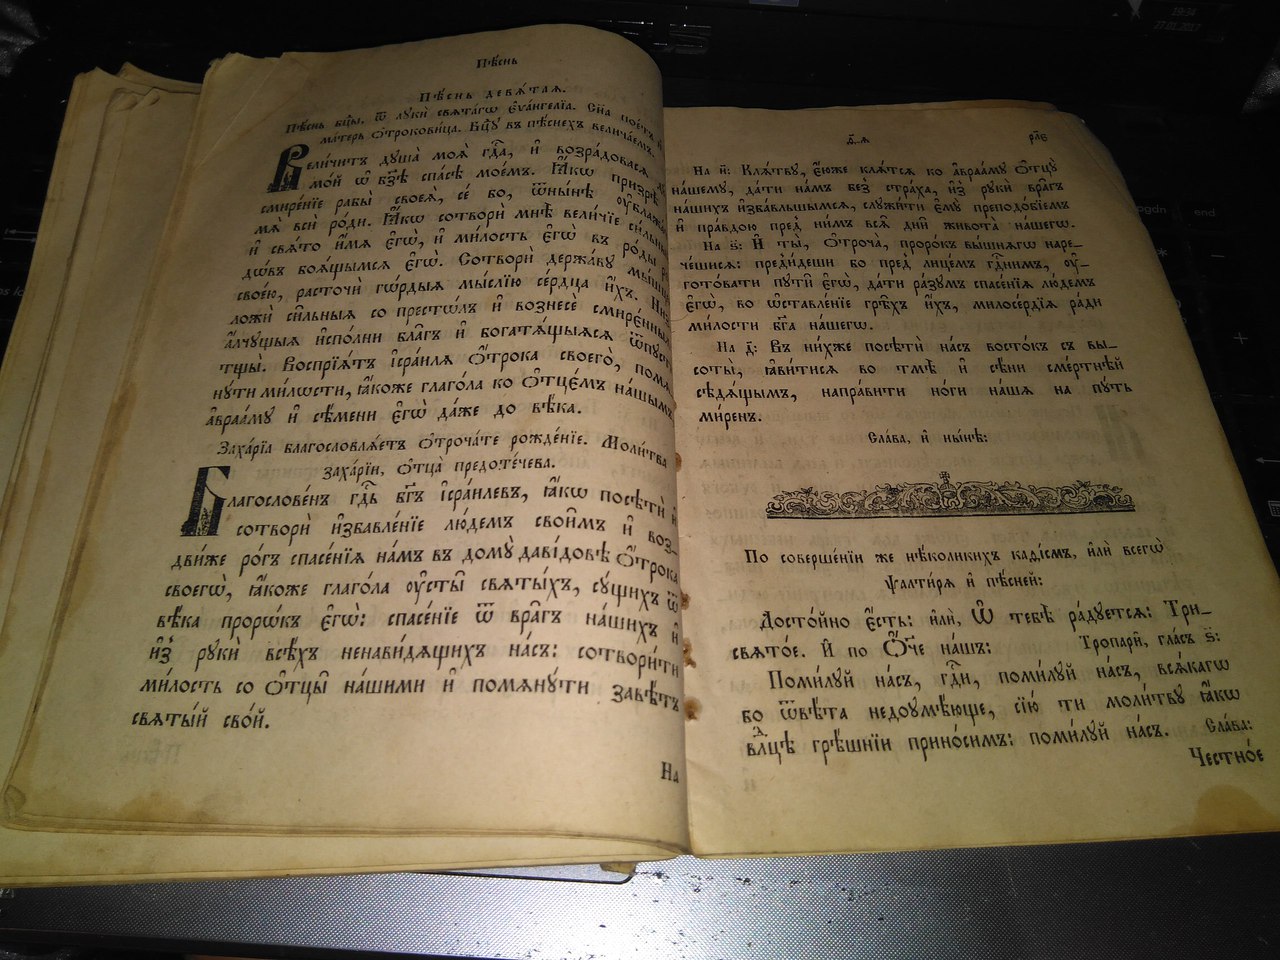 Пѣ́снь
Пѣ́снь девѧ́таѧ.
Пѣ́снь бц҃ы. Ѿ лꙋки̑ свѧта́гѡ є҆ѵа́нгелїа. Сн҃а пое́тъ
ма́терь ѻ҆трокови́ца. Бцⷣꙋ въ пѣ́снехъ велича́емъ.
Вели́читъ дꙋша̀ моѧ̀ гдⷭ҇а, и҆ возра́довасѧ
мо́й ѡ҆ бз҃ѣ спⷭ҇сѣ мое́мъ. Ꙗ҆́кѡ призрѣ̀
смире́нїе рабы̀ своеѧ̀, се́ бо, ѿны́нѣ
мѧ̀ всѝ ро́ди. Ꙗ҆́кѡ сотворѝ мнѣ̀ вели́чїе си́льный
и҆ свѧ́то и҆́мѧ є҆гѡ̀, и҆ ми́лость є҆гѡ̀ въ ро́ды
дѡ́въ боѧ́щымсѧ є҆гѡ̀. Сотворѝ держа́вꙋ мы́шцею
свое́ю, расточѝ гѡ́рдыѧ мы́слїю се́рдца и҆́хъ. Низ
ложѝ си́льныѧ со престѡ́лъ и҆ вознесѐ смире́нныѧ
а҆́лчꙋщыѧ и҆спо́лни бла̑гъ и҆ богатѧ́щыѧсѧ ѿпꙋстѝ
тщы̀. Воспрїѧ́тъ і҆сра́илѧ ѻ҆́трока своего̀, помѧ
нꙋ́ти ми́лѡсти, ꙗ҆́коже глаго́ла ко ѻ҆тцє́мъ на́шымъ
а҆враа́мꙋ и҆ сѣ́мени є҆гѡ̀ да́же до вѣ́ка.
Заха́рїа благословлѧ́етъ ѻ҆троча́те рожде́нїе. Моли́тва
заха́рїи, ѻ҆тца̀ предоте́чева.
Благослове́нъ гдⷭ҇ь бг҃ъ і҆сра́илевъ, ꙗ҆́кѡ посѣтѝ и҆
сотворѝ и҆збавле́нїе лю́демъ свои̑мъ и҆ воз_
дви́же ро́гъ спасе́нїѧ на́мъ въ домꙋ̀ даві́довѣ ѻ҆́трока
своегѡ̀, ꙗ҆́коже глаго́ла ᲂу҆сты̑ свѧты́хъ, сꙋ́щихъ ѿ
вѣ́ка прорѡ́къ є҆гѡ̀: спасе́нїе ѿ вра̑гъ на́шихъ и҆
и҆з̾ рꙋкѝ всѣ́хъ ненави́дѧщихъ на́съ: сотвори́ти
ми́лость со ѻ҆тцы̑ на́шими и҆ помѧнꙋ́ти завѣ́тъ
свѧты́й сво́й.
На
д҃-ѧ
рл҃ѳ
На и҃: Клѧ́твꙋ, є҆́юже клѧ́тсѧ ко а҆враа́мꙋ ѻ҆тцꙋ̀
на́шемꙋ, да́ти на́мъ без̾ стра́ха, и҆з̾ рꙋкѝ вра̑гъ
на́шихъ и҆зба́вльшымсѧ, слꙋжи́ти є҆мꙋ̀ преподо́бїемъ
и҆ пра́вдою пред̾ ни́мъ всѧ̑ дни̑ живота̀ на́шегѡ.
На ѕ҃: И҆ ты̀, ѻ҆троча̀, проро́къ вы́шнѧгѡ наре_
че́шисѧ: пред̾и́деши бо пред̾ лице́мъ гдⷭ҇нимъ, ᲂу҆_
гото́вати пꙋти̑ є҆гѡ̀, да́ти ра́зꙋмъ спасе́нїѧ лю́демъ
є҆гѡ̀, во ѡ҆ставле́нїе грѣ̑хъ и҆́хъ, милосе́рдїѧ ра́ди
ми́лости бг҃а на́шегѡ.
На д҃: Въ ни́хже посѣтѝ на́съ восто́къ съ вы_
соты̀, ꙗ҆ви́тисѧ во тмѣ̀ и҆ сѣ́ни сме́ртнѣй
сѣдѧ́щымъ, напра́вити но́ги на́шѧ на пꙋ́ть
ми́ренъ.
Сла́ва, и҆ ны́нѣ:
По соверше́нїи же нѣ́коликихъ каді́смъ, и҆лѝ всегѡ̀
ѱалти́рѧ и҆ пѣ́сней:
Досто́йно є҆́сть: и҆лѝ, Ѽ тебѣ̀ ра́дꙋетсѧ: Три_
свѧто́е. И҆ по Ѻ҆́ч҃е на́шъ: Тропарѝ, гла́съ ѕ҃:
Поми́лꙋй на́съ, гдⷭ҇и, поми́лꙋй на́съ, всѧ́кагѡ
бо ѿвѣ́та недоꙋмѣ́юще, сїю̀ ти моли́твꙋ ꙗ҆́кѡ
влⷣцѣ грѣ́шнїи прино́симъ: поми́лꙋй на́съ. Сла́ва:
Честно́е